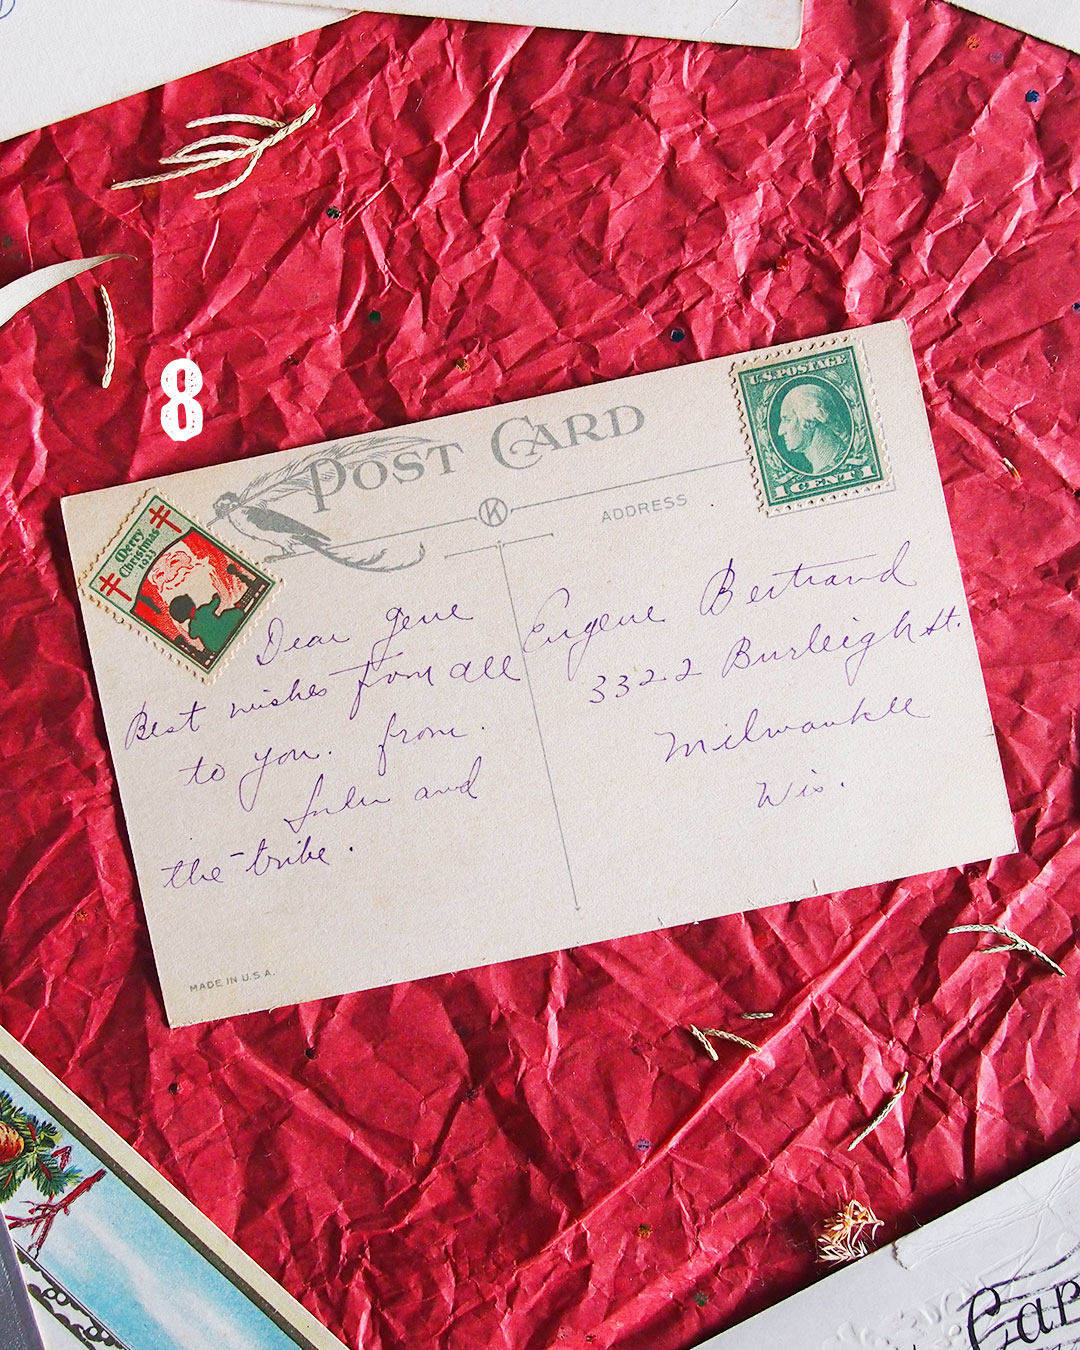 8
POST CARD
K
ADDRESS
U.S. POSTAGE
1 CENT 1
Merry
Christmas
1923
Dear Gene
Best wishes from all
to you. from.
Lulu and
the tribe.
Eugene Bertrand
3322 Burleigh St.
Milwaukee
Wis.
MADE IN U.S.A.
Car